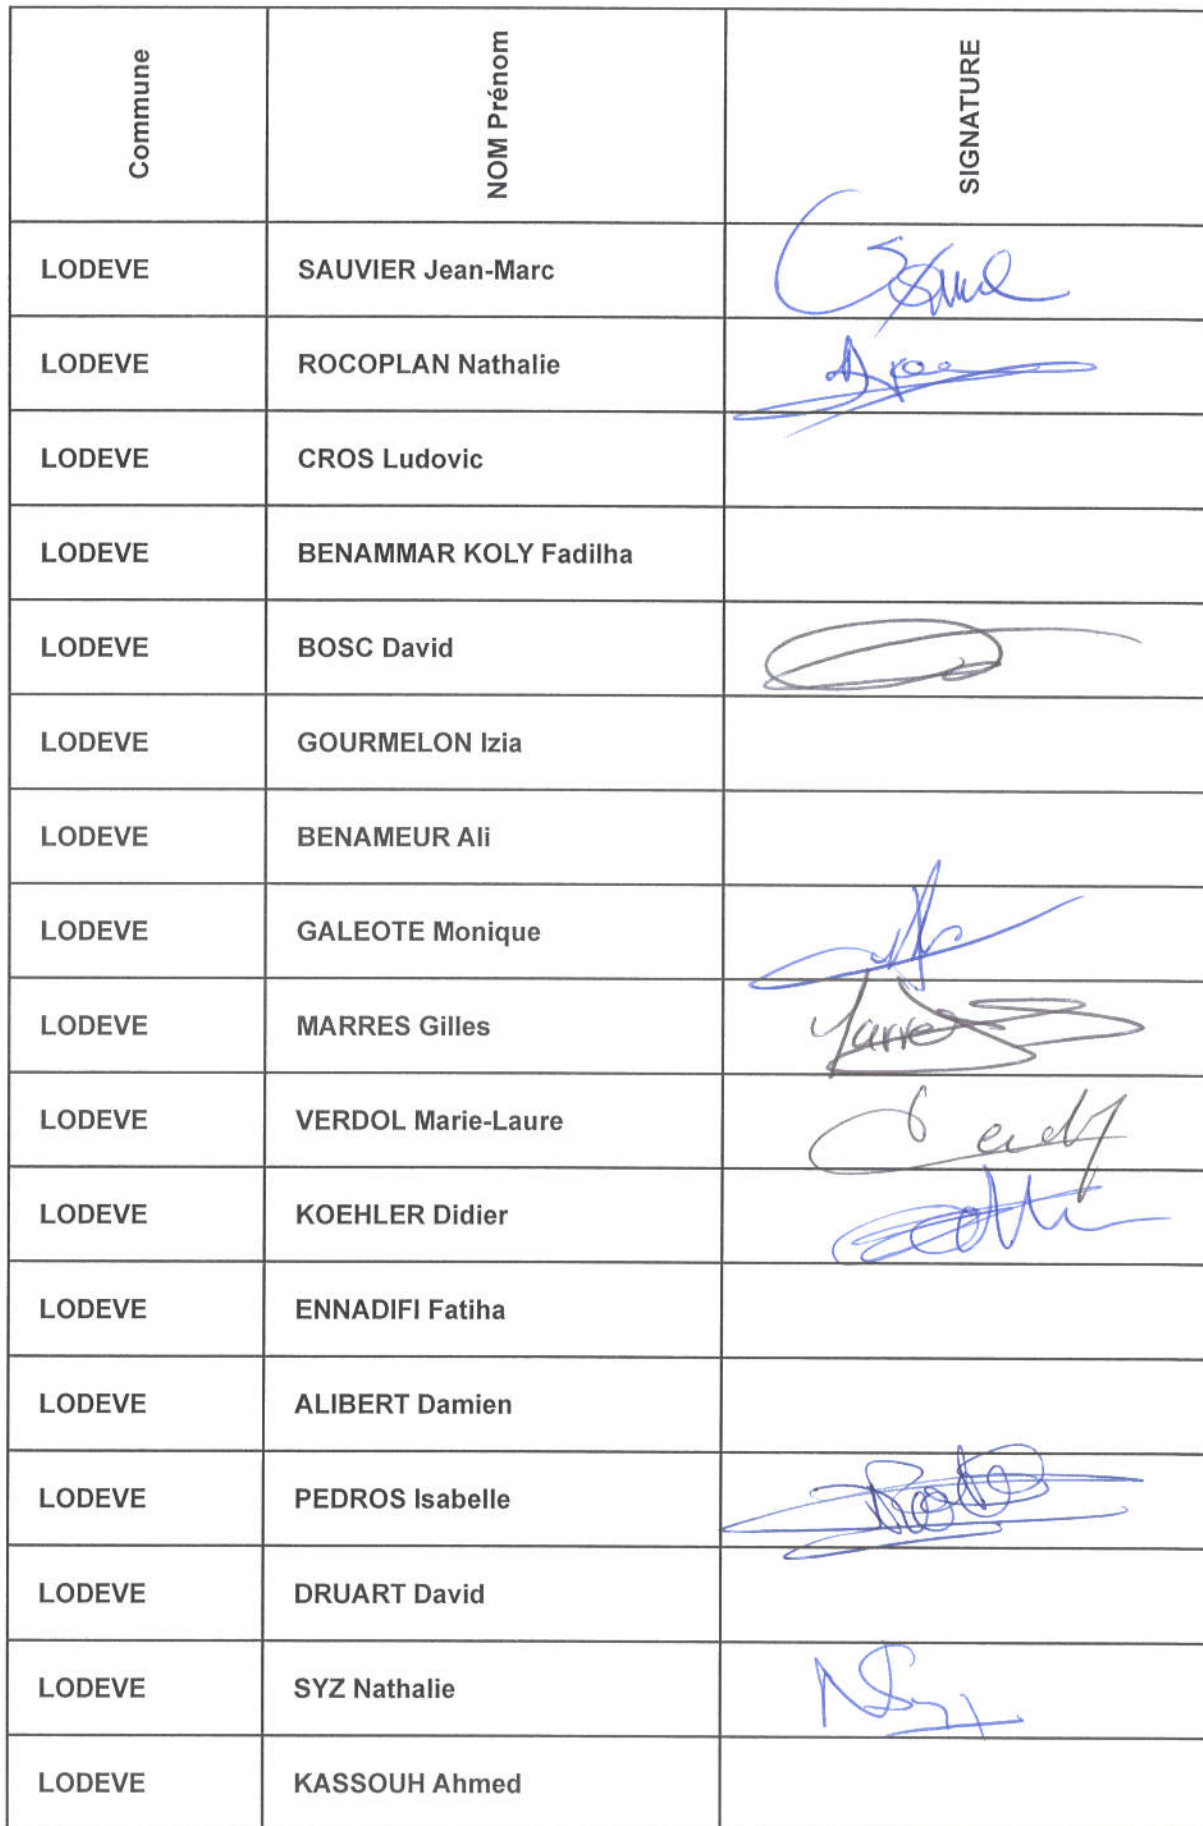 Commune NOM Prénom SIGNATURE
LODEVE SAUVIER Jean-Marc
LODEVE ROCOPLAN Nathalie
LODEVE CROS Ludovic
LODEVE BENAMMAR KOLY Fadilha
LODEVE BOSC David
LODEVE GOURMELON Izia
LODEVE BENAMEUR Ali
LODEVE GALEOTE Monique
LODEVE MARRES Gilles
LODEVE VERDOL Marie-Laure
LODEVE KOEHLER Didier
LODEVE ENNADIFI Fatiha
LODEVE ALIBERT Damien
LODEVE PEDROS Isabelle
LODEVE DRUART David
LODEVE SYZ Nathalie
LODEVE KASSOUH Ahmed